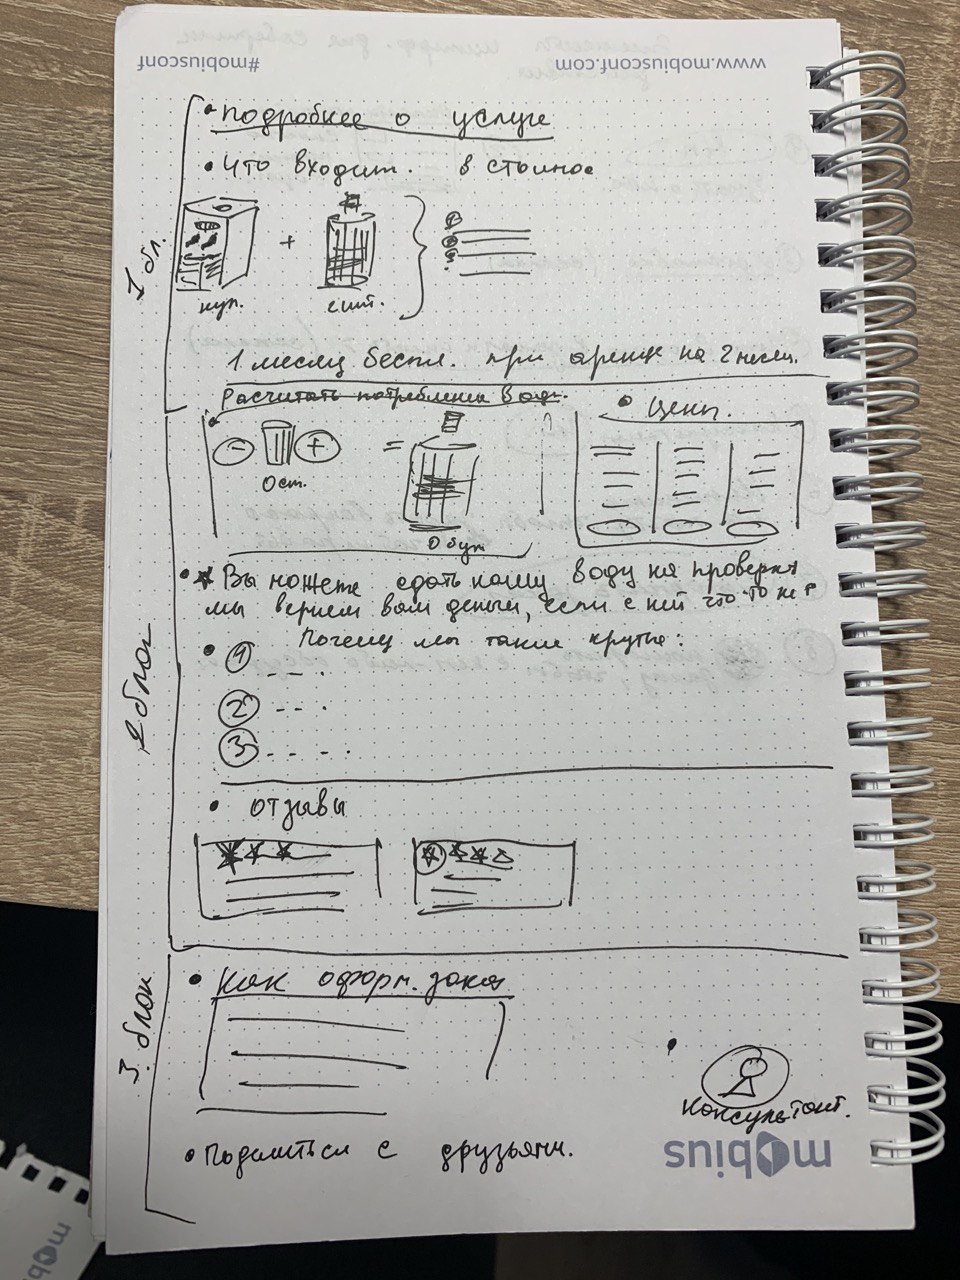 #mobiusconf
www.mobiusconf.com
• Подробнее о услуге
• Что входит. в стоимос
+
кул.
1 бл.
1 месяц беспл. при аренде на 2 месяц.
Расчитать потребление вод.
• Цены.
- + =
0 ст.
0 бут
• Вы можете сдать нашу воду на проверку
мы вернем вам деньги, если с ней что-то не
Почему мы такие крутые:
• 1 - - .
2 - - .
3 - - - .
2 блок
• Отзывы
3. блок
• Как оформ. заказ
Консультант.
• Поделиться с друзьями.
mobius